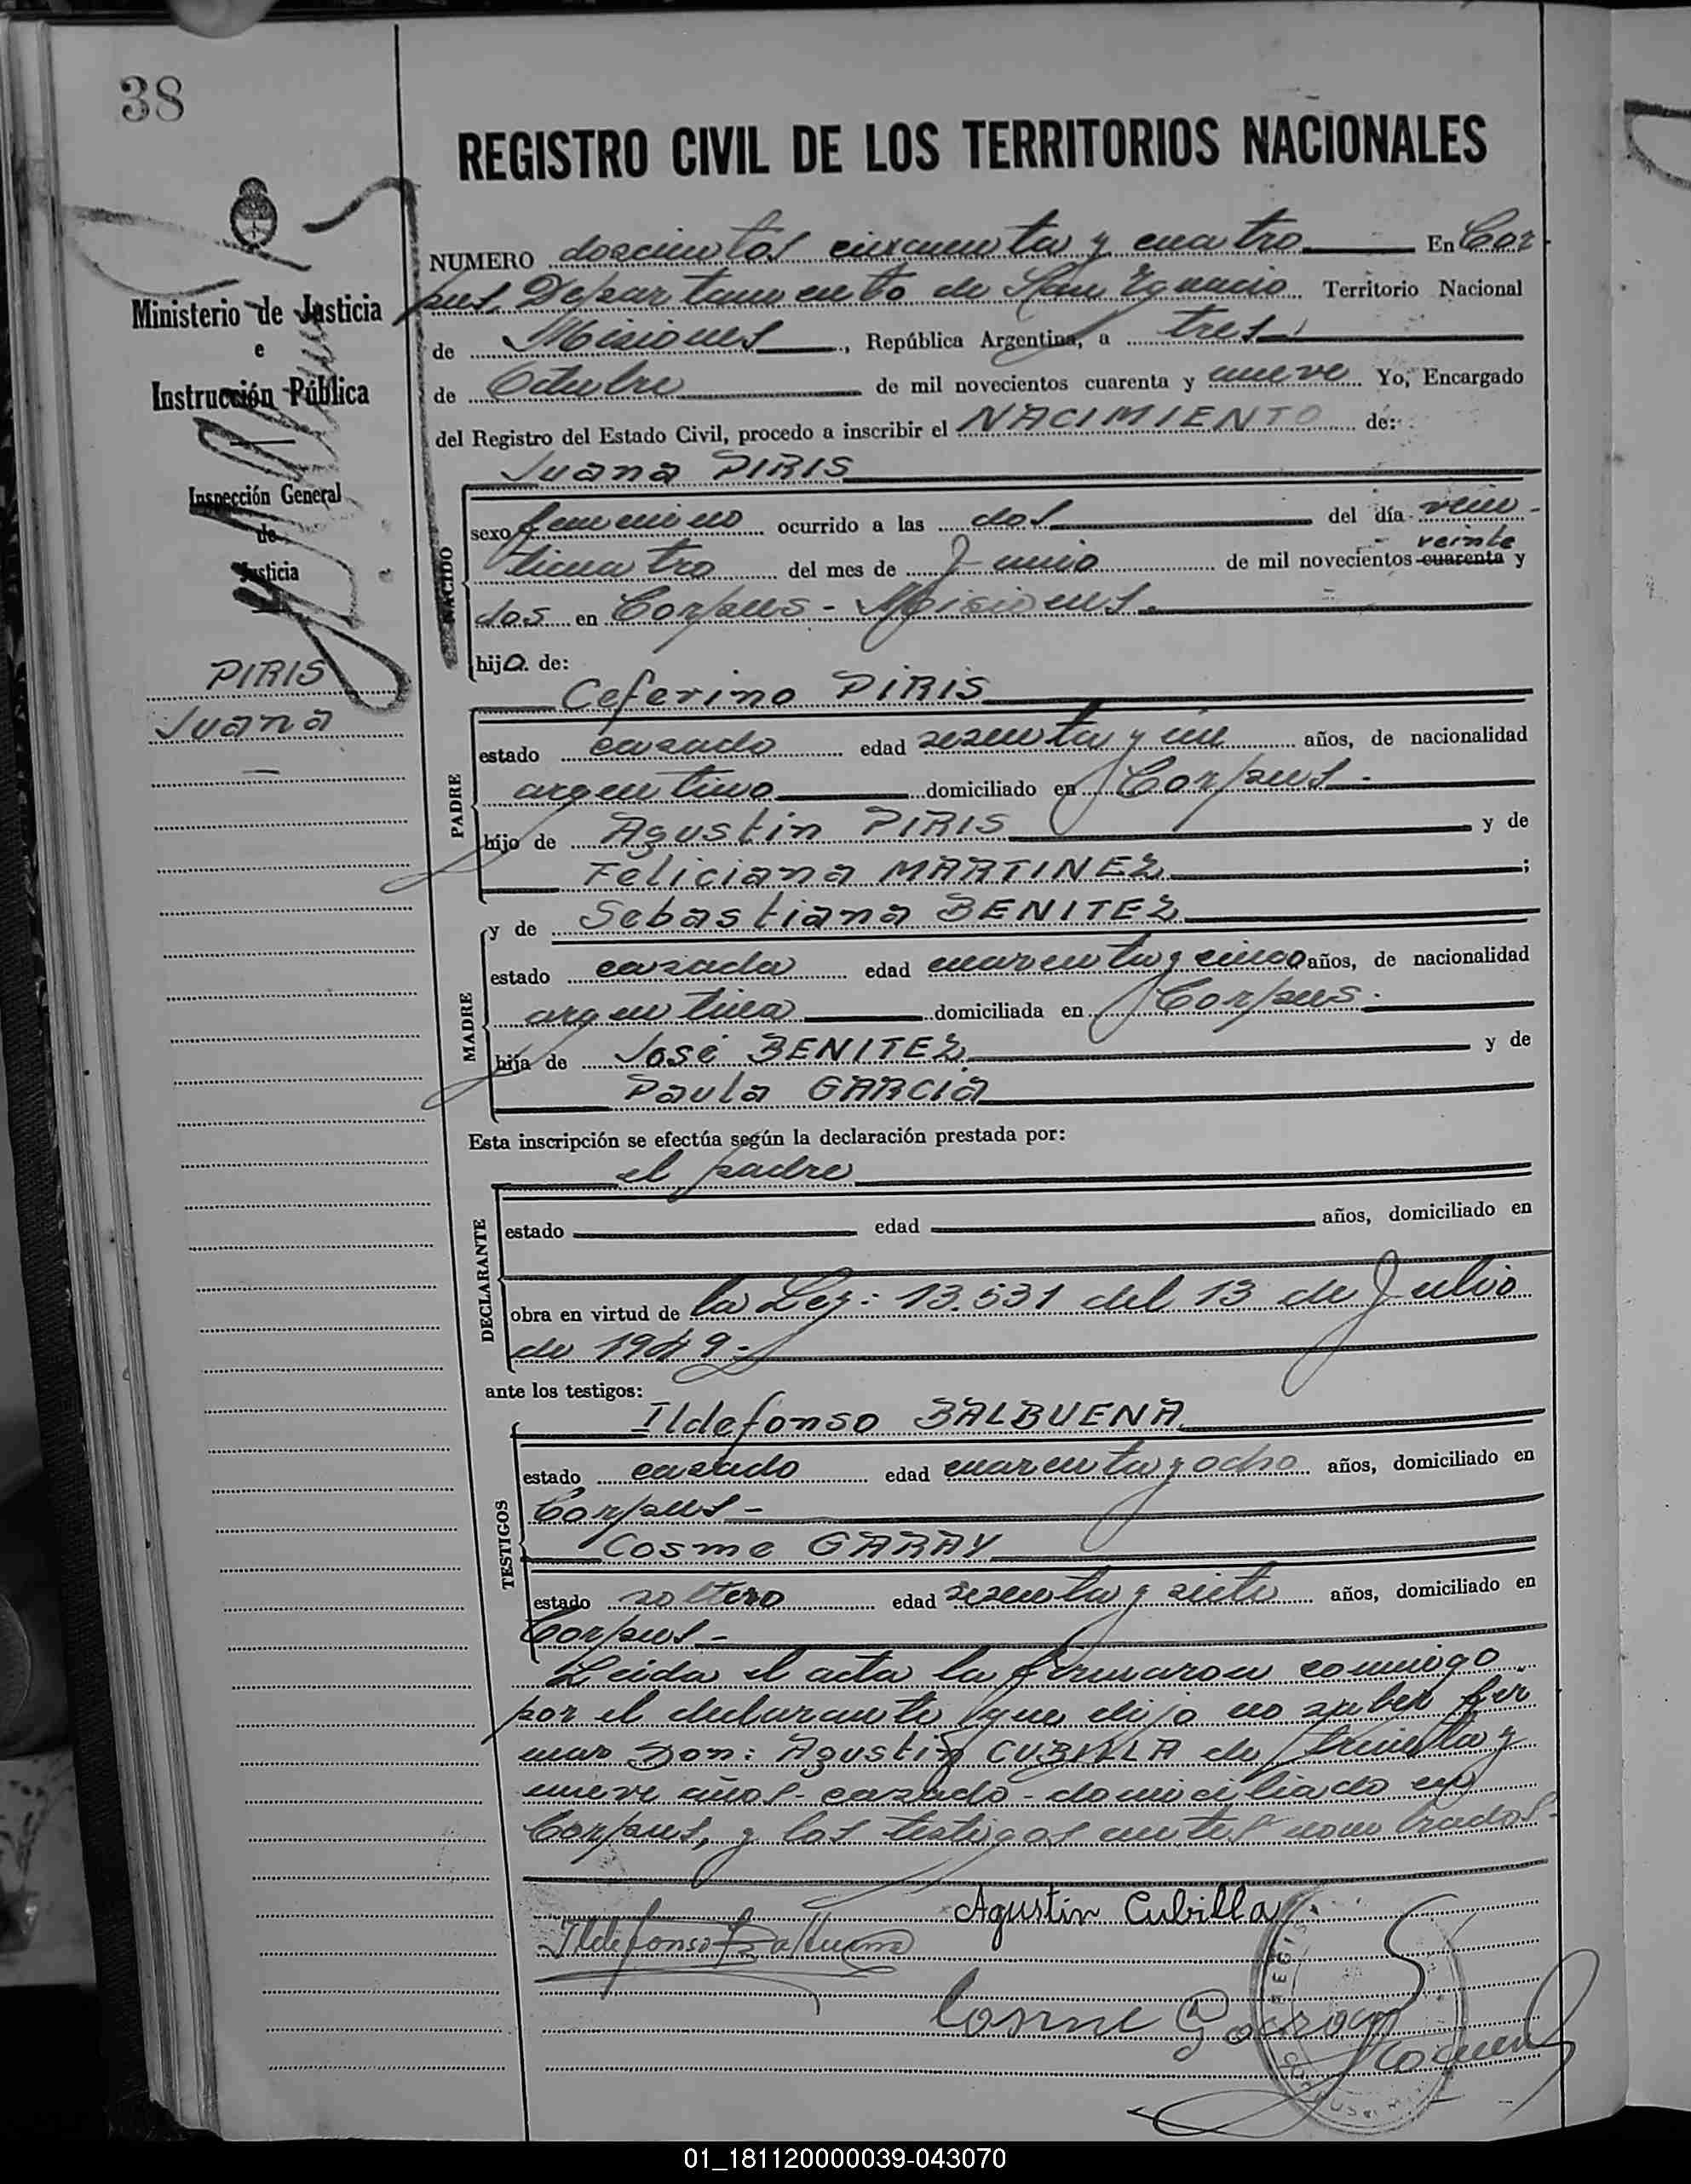 38
REGISTRO CIVIL DE LOS TERRITORIOS NACIONALES
Ministerio de Justicia
e
Instrucción Pública
Inspección General
de
Justicia
PIRIS
Juana
NUMERO doscientos cincuenta y cuatro En Cor
pus, Departamento de San Ignacio Territorio Nacional
de Misiones, República Argentina, a tres
de Octubre de mil novecientos cuarenta y nueve Yo, Encargado
del Registro del Estado Civil, procedo a inscribir el NACIMIENTO de:
Juana PIRIS
NACIDO
sexo femenino ocurrido a las dos del día vein-
ticuatro del mes de Junio de mil novecientos cuarenta y
veinte
dos en Corpus - Misiones.
hija de:
Ceferino PIRIS
PADRE
estado casado edad sesenta y un años, de nacionalidad
argentino domiciliado en Corpus -
hijo de Agustin PIRIS y de
Feliciana MARTINEZ ;
MADRE
y de Sebastiana BENITEZ
estado casada edad cuarenta y cinco años, de nacionalidad
argentina domiciliada en Corpus.
hija de José BENITEZ y de
Paula GARCIA
Esta inscripción se efectúa según la declaración prestada por:
el padre
DECLARANTE
estado edad años, domiciliado en
obra en virtud de la Ley: 13.531 del 13 de Julio
de 1949.-
ante los testigos:
Ildefonso BALBUENA
TESTIGOS
estado casado edad cuarenta y ocho años, domiciliado en
Corpus -
Cosme GARAY
estado soltero edad sesenta y siete años, domiciliado en
Corpus -
Leida el acta la firmaron conmigo
por el declarante que dijo no saber fir
mar Don: Agustin CUBILLA de treinta y
nueve años - casado - domiciliado en
Corpus, y los testigos antes nombrados -
Agustin Cubilla
Ildefonso Balbuena
Cosme Garay
01_181120000039-043070